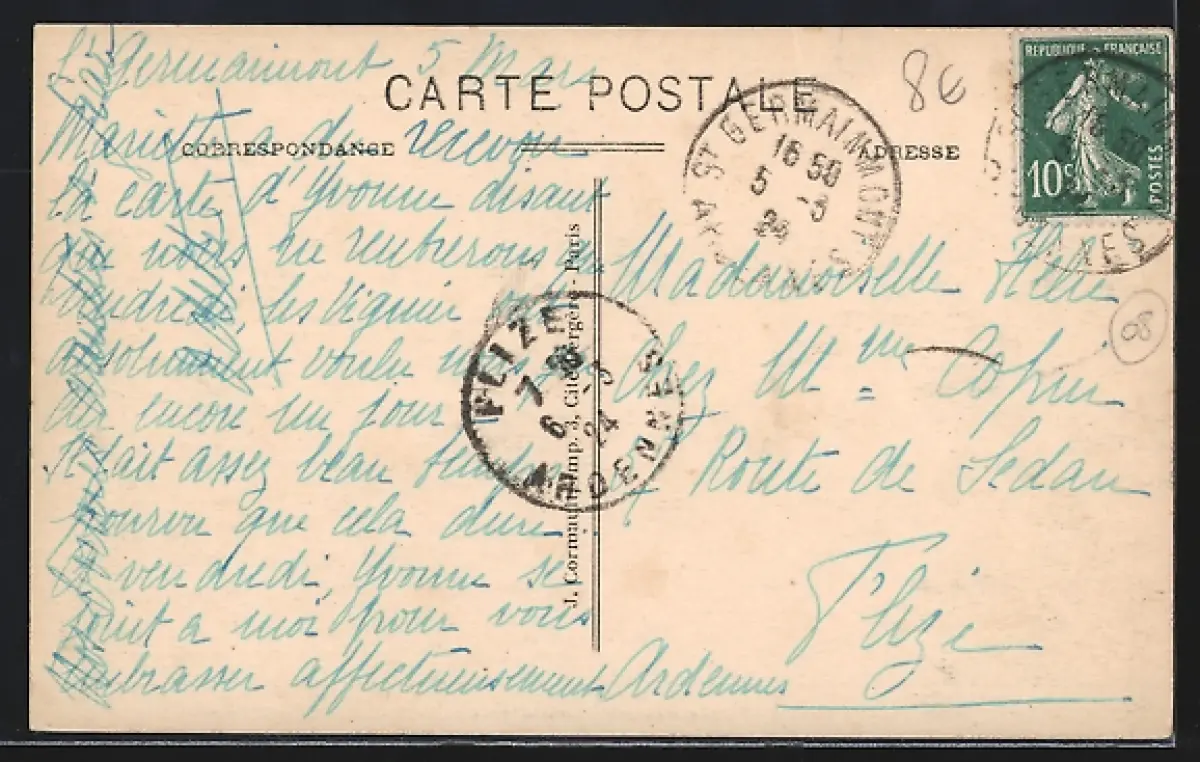 St Germainmont 5 Mars
CARTE POSTALE
CORRESPONDANCE
ADRESSE
8€
RÉPUBLIQUE FRANÇAISE
10c
POSTES
ST GERMAINMONT
16 50
5 - 3
24
ARDENNES
08
a du recevoir
la carte d'Yvonne disant
que nous ne rentrerons que
vendredi, les Viguier
absolument voulu
encore un jour
Il fait assez beau temps
pourvu que cela dure
A vendredi, Yvonne se
joint a moi pour vous
embrasser affectueusement
FLIZE
6 - 3
24
ARDENNES
J. Cormault, Imp. 3, Cité Bergère - Paris
Mademoiselle
Chez Mme
Route de Sedan
Flize
Ardennes